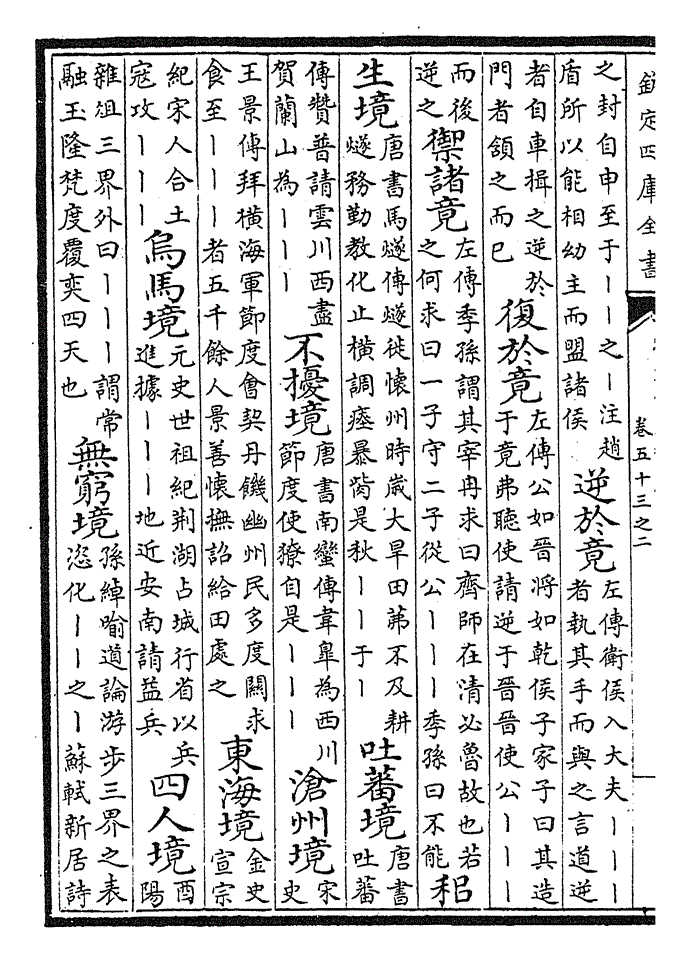 欽定四庫全書
卷五十三之二
之封自申至于丨丨之丨注趙
盾所以能相幼主而盟諸侯
逆於竟
左傳衛侯入大夫丨丨丨
者執其手而與之言道逆
者自車揖之逆於
門者頷之而已
復於竟
左傳公如晉將如乾侯子家子曰其造
于竟弗聽使請逆于晉晉使公丨丨丨
而後
逆之
禦諸竟
左傳季孫謂其宰冉求曰齊師在清必魯故也若
之何求曰一子守二子從公丨丨丨季孫曰不能
稆
生境
唐書馬燧傳燧徙懷州時歲大旱田茀不及耕
燧務勤教化止橫調瘞暴胔是秋丨丨于丨
吐蕃境
唐書
吐蕃
傳贊普請雲川西盡
賀蘭山為丨丨丨
不擾境
唐書南蠻傳韋臯為西川
節度使獠自是丨丨丨
滄州境
宋
史
王景傳拜橫海軍節度會契丹饑幽州民多度關求
食至丨丨丨者五千餘人景善懷撫詔給田處之
東海境
金史
宣宗
紀宋人合土
寇攻丨丨丨
烏馬境
元史世祖紀荆湖占城行省以兵
進據丨丨丨地近安南請益兵
四人境
酉
陽
雜俎三界外曰丨丨丨謂常
融玉隆梵度覆奕四天也
無窮境
孫綽喻道論游步三界之表
恣化丨丨之丨蘇軾新居詩